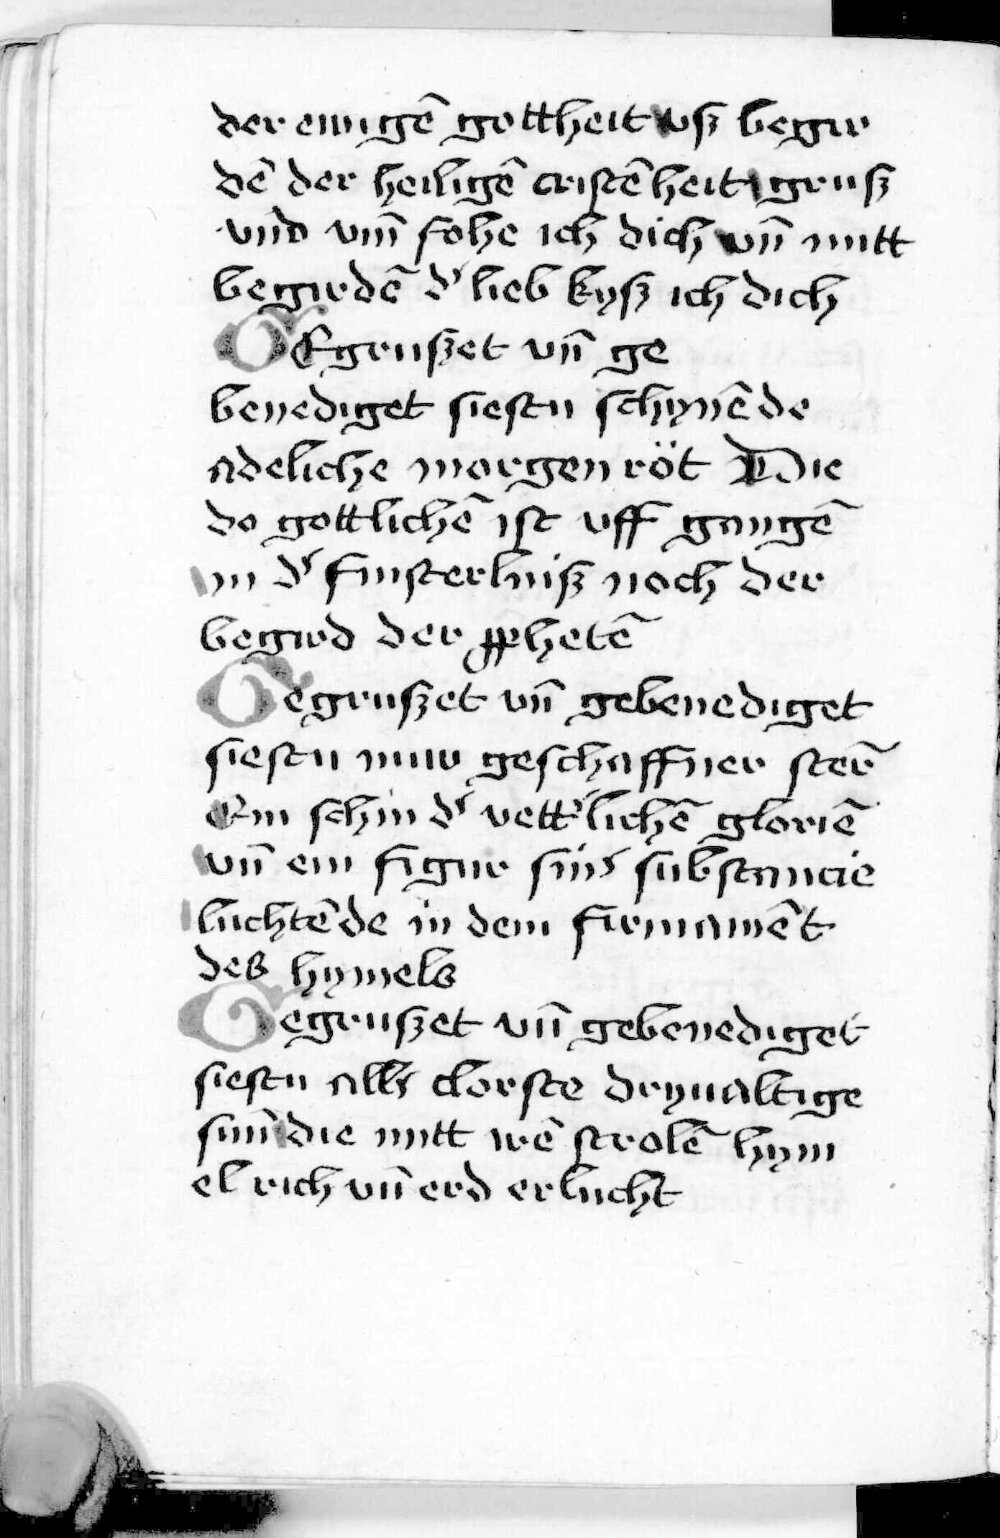 der ewigē gottheit vsz begir
dē der heiligē cristēheit grusz
vnd vm̄ fohe ich dich vn̄ mitt
begirdē d' lieb kysz ich dich
GEgruszet vn̄ ge
benediget siestu schynēde
adeliche morgen röt Die
do gottlichē ist vff gangē
in d' finsterlnisz noch der
begird der ꝓphetē
Gegruszet vn̄ gebenediget
siestu nuw geschaffner stern̄
Ein schin d' vett'lichē gloriē
vn̄ ein figur sin' substancie
luchtēde in dem firmamēt
des hymels
Gegruszet vn̄ gebenediget
siestu all' clorste dryualtige
sun̄ die mitt irē strolē hym
el rich vn̄ erd erlucht